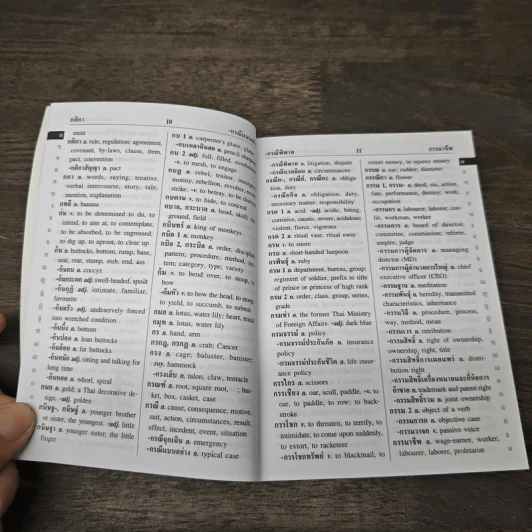 กติกา
10
ment
กติกา n. rule, regulation; agreement,
covenant, by-laws, clause, item,
pact, convention
-กติกาสัญญา n. pact
กถา n. words, saying; treatise,
verbal intercourse, story, tale,
narration, explanation
กทลี n. banana
ก้น n. buttocks, bottom, rump, base,
seat, rear, stump, stub, end, ass
-ก้นกบ n. coccyx
favourite
into wretched condition
-ก้นบึ้ง n. bottom
-ก้นปอด n. lean buttocks
-ก้นย้อย n. fat buttocks
-ก้นหนัก n. sitting and talking for
long time
-ก้นหอย n. whorl, spiral
กนก n. gold; a Thai decorative de-
sign, -adj. golden
กนิษฐ-, กนิษฐ์ n. younger brother
or sister, the youngest. -adj. little
กนิษฐา n. younger sister; the little
finger
กบ 1 n. carpenter's plane, plane
กบ 2 adj. full, filled,
-v. to mesh, to engage
กบฏ n. rebel, traitor,
mutiny, rebellion, revolter,
strike. -v. to betray,
กบดาน v. to hide, to conceal
ground, field
กบินทร์ n. king of monkeys
กบิล 1 n. monkey
กบิล 2, กระบิล n. order, discipline,
pattern; procedure, method,
tem; category, type; variety
v. to bend over, to stoop, to
bow
-ก้มหัว v. to bow the head, to stoop,
to yield, to succumb, to submit
กมล n. lotus, water lily; heart, mind
กมุท n. lotus, water lily
กร n. hand, arm
กรกฎ, กรกฏ n. crab; Cancer
กรง n. cage; baluster, banister,
hammock
-กรงเล็บ n. talon, claw, tentacle
กรณฑ์ n. root, square root,
ket, box, casket, case
กรณี n. case, consequence, motive,
suit, action, circumstances, result,
effect, incedent, event, situation
-กรณีฉุกเฉิน n. emergency
-กรณีแบบอย่าง n. typical case
-กรณีพิพาท
11
กรรมาชีพ
-กรณีพิพาท n. litigation, dispute
-กรณีแวดล้อม n. circumstances
กรณีย-, กรณีย์, กรณียะ n. obliga-
tion, duty
-กรณียกิจ n. obligation, duty,
necessary matter, responsibility
กรด 1 n. acid. -adj. acidic, biting,
corrosive, caustic, severe, acidulous;
violent, fierce, vigorous
กรด 2 n. ritual vase, ritual ewer
กรน v. to snore
กรบ n. short-handed harpoon
กรพินธุ์ n. ruby
กรม 1 n. department, bureau, group;
regiment of soldier, prefix to title
of prince or princess of high rank
กรม 2 n. order, class, group, series,
grade
กรมท่า n. the former Thai Ministry
of Foreign Affairs. -adj. dark blue
กรมธรรม์ n. policy
-กรมธรรม์ประกันภัย n. insurance
policy
-กรมธรรม์ประกันชีวิต n. life insur-
ance policy
กรรไกร n. scissors
กรรเชียง n. oar, scull, paddle. -v. to
oar, to paddle, to row; to back-
stroke
กรรโชก v. to threaten, to terrify, to
intimidate, to come upon suddenly,
to extort, to racketeer
-กรรโชกทรัพย์ v. to blackmail, to
extort money, to squeeze money
กรรณ n. ear; rudder; diameter
กรรณิการ์ n. flower
กรรม 1, กรรม- n. deed, sin, action,
fate, performance, destiny; work,
occupation
-กรรมกร n. labourer, labourer, coo-
lie, workman, worker
-กรรมการ n. board of director,
committee, commission; referee,
umpire, judge
-กรรมการผู้จัดการ n. managing
director (MD)
-กรรมการผู้อำนวยการใหญ่ n. chief
executive officer (CEO)
-กรรมฐาน n. meditation
-กรรมพันธุ์ n. heredity, transmitted
characteristics, inheritance
-กรรมวิธี n. procedure, process,
way, method, mean
-กรรมเวร n. retribution
-กรรมสิทธิ์ n. right of ownership,
ownership, right, title
-กรรมสิทธิ์การเผยแพร่ n. distri-
bution right
-กรรมสิทธิ์เครื่องหมายและที่มีการ
n. trademark and patent right
-กรรมสิทธิ์ร่วม n. joint ownership
กรรม 2 n. object of a verb
-กรรมการก n. objective case
-กรรมวาจก n. passive voice
กรรมาชีพ n. wage-earner, worker,
labourer, laborer, proletariat